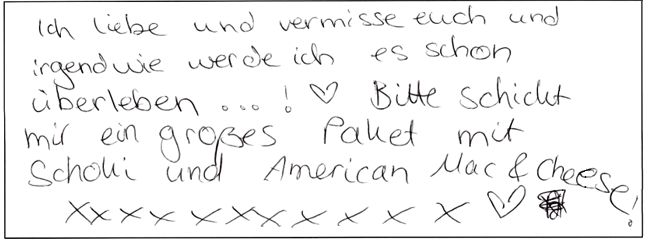 Ich liebe und vermisse euch und
irgendwie werde ich es schon
überleben ... ! ♡ Bitte schickt
mir ein großes Paket mit
Schoki und American Mac & Cheese!
xxxx x xxx x x x x ♡